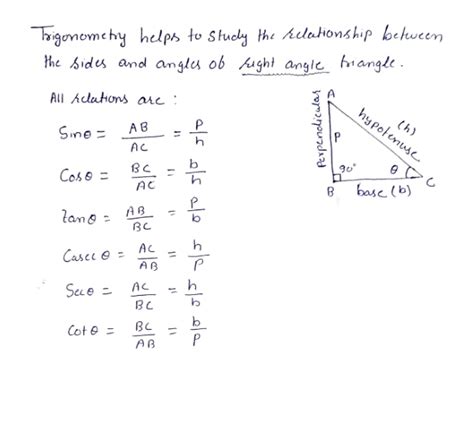 Trigonometry helps to study the relationship between
the sides and angles ob right angle triangle.
All relations are :
Sinθ = AB/AC = P/h
Cosθ = BC/AC = b/h
tanθ = AB/BC = P/b
Casec θ = AC/AB = h/P
Secθ = AC/BC = h/b
Cotθ = BC/AB = b/P
A
Perpendicular
P
hypotenuse (h)
90°
θ
B
C
base (b)